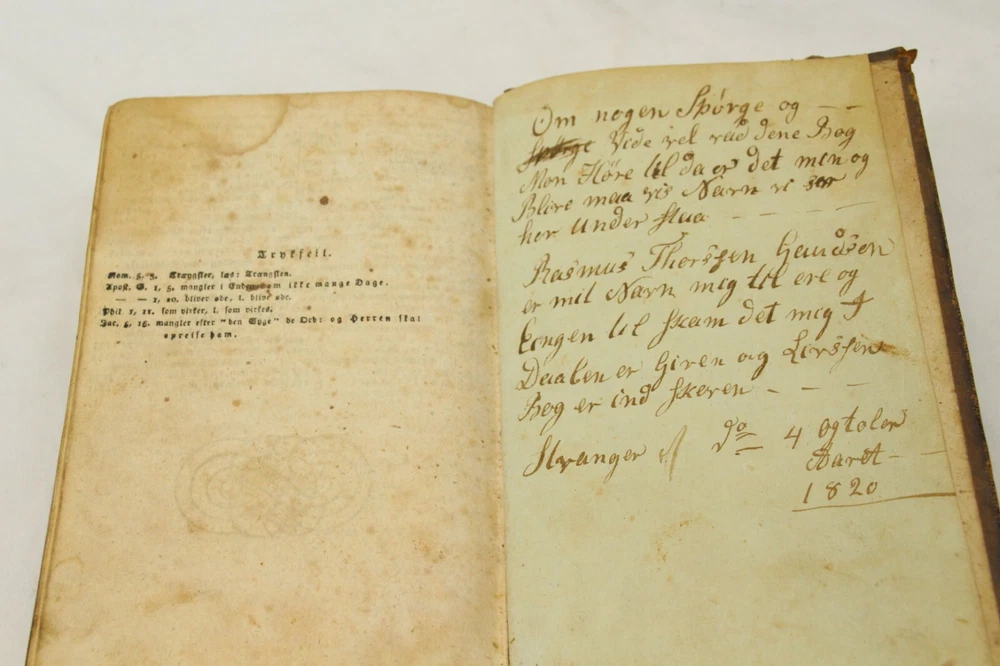 Trykfeil.
Rom. 5, 3. Trængsler, læs: Trængslen.
Apost. G. 1, 5. mangler i Enden: om ikke mange Dage.
— — 1, 20. bliver øde, l. blive øde.
Phil 2, 12. som virker, l. som virkes.
Jac. 5, 15. mangler efter "den Syge" de Ord: og Herren skal
opreise ham.
Om nogen Spørge og — —
Vide vel vad dene Bog
Mon Høre til da er det min og
Blive maa vis Navn vi
her under staa — — — —
Rasmus Thorssen
er mit Navn mig til ere og
Eingen til skam det mig
er Given og
Bog er ind skreven - — —
Stranger do 4 Ogtober
Aaret —
1820